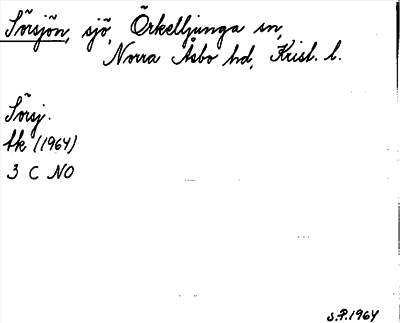 Sörsjön, sjö, Örkelljunga sn,
Norra Åsbo hd, Krist. l.
Sörsj.
Ek (1964)
3 C NO
S.P. 1964